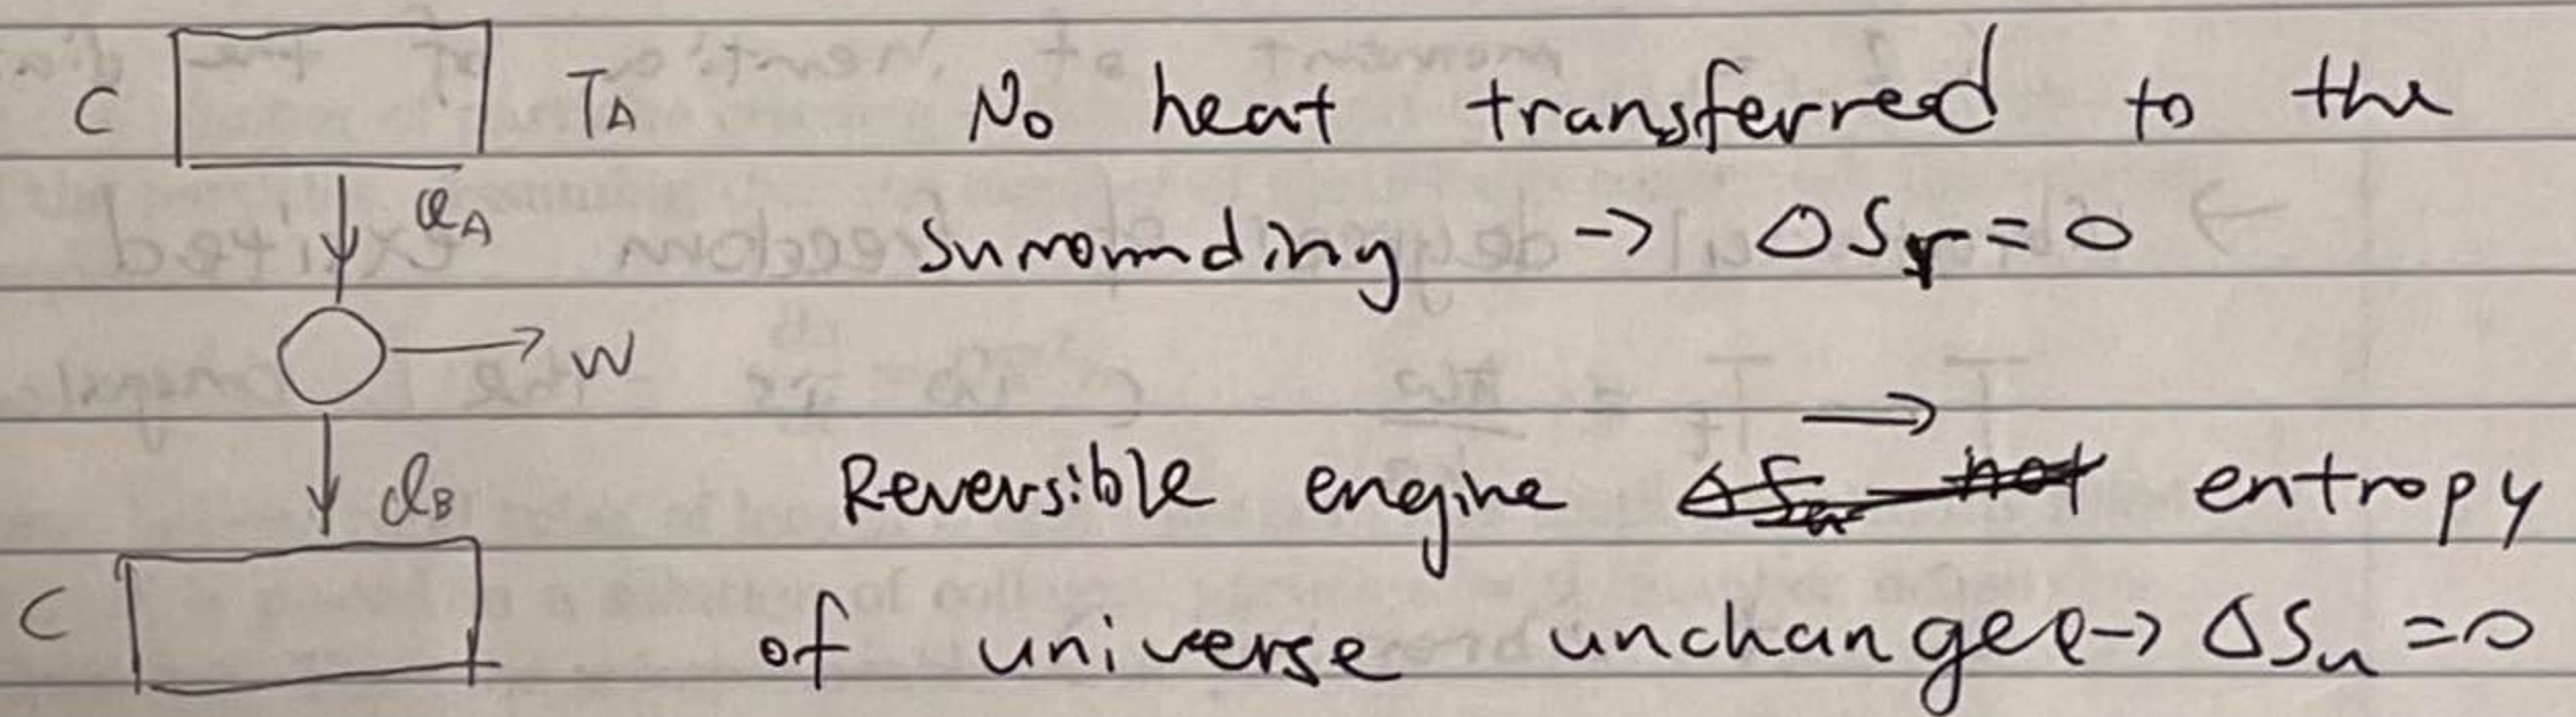 C T_A No heat transferred to the
Q_A surrounding -> ΔS_r = 0
→ W
Q_B Reversible engine → entropy
C of universe unchanged -> ΔS_u = 0